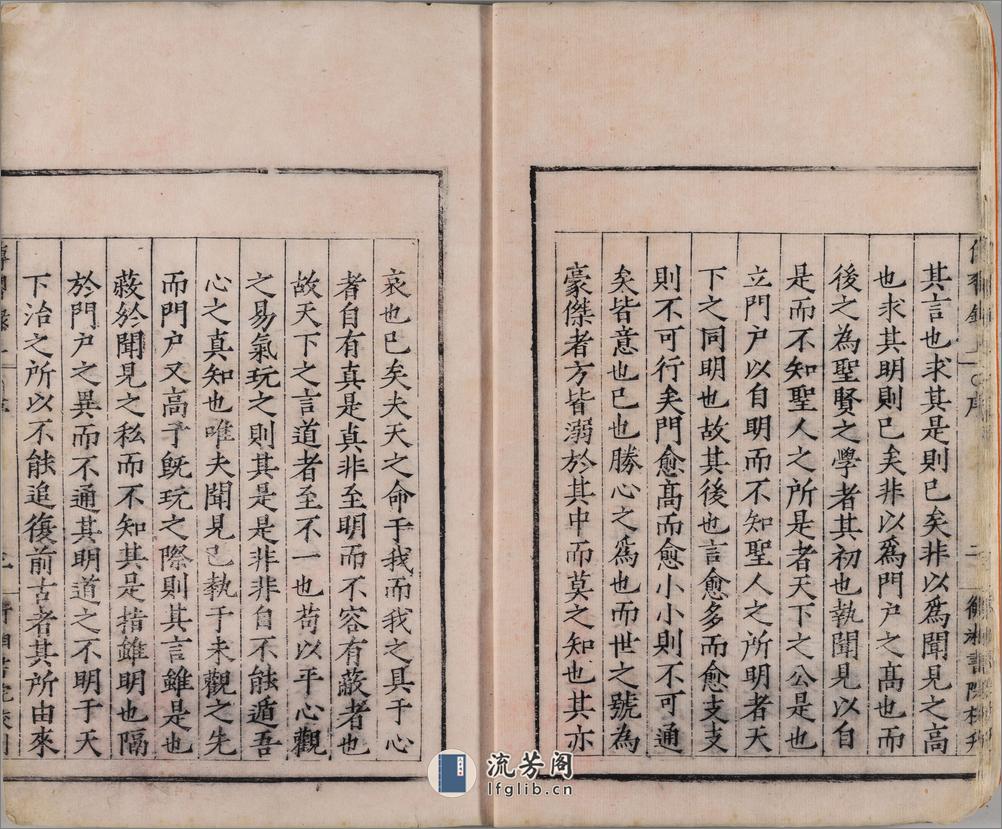 其言也求其是則已矣非以爲聞見之高
也求其明則已矣非以爲門户之髙也而
後之為聖賢之學者其初也執聞見以自
是而不知聖人之所是者天下之公是也
立門户以自明而不知聖人之所明者天
下之同明也故其後也言愈多而愈支支
則不可行矣門愈髙而愈小小則不可通
矣皆意也己也勝心之爲也而世之號為
豪傑者方皆溺於其中而莫之知也其亦
哀也已矣夫天之命于我而我之具于心
者自有真是真非至明而不容有蔽者也
故天下之言道者至不一也苟以平心觀
之易氣玩之則其是是非非自不能遁吾
心之真知也唯夫聞見已執于未觀之先
而門户又高于既玩之際則其言雖是也
蔽於聞見之私而不知其是指雖明也隔
於門户之異而不通其明道之不明于天
下治之所以不能追復前古者其所由來
流芳阁
lfglib.cn